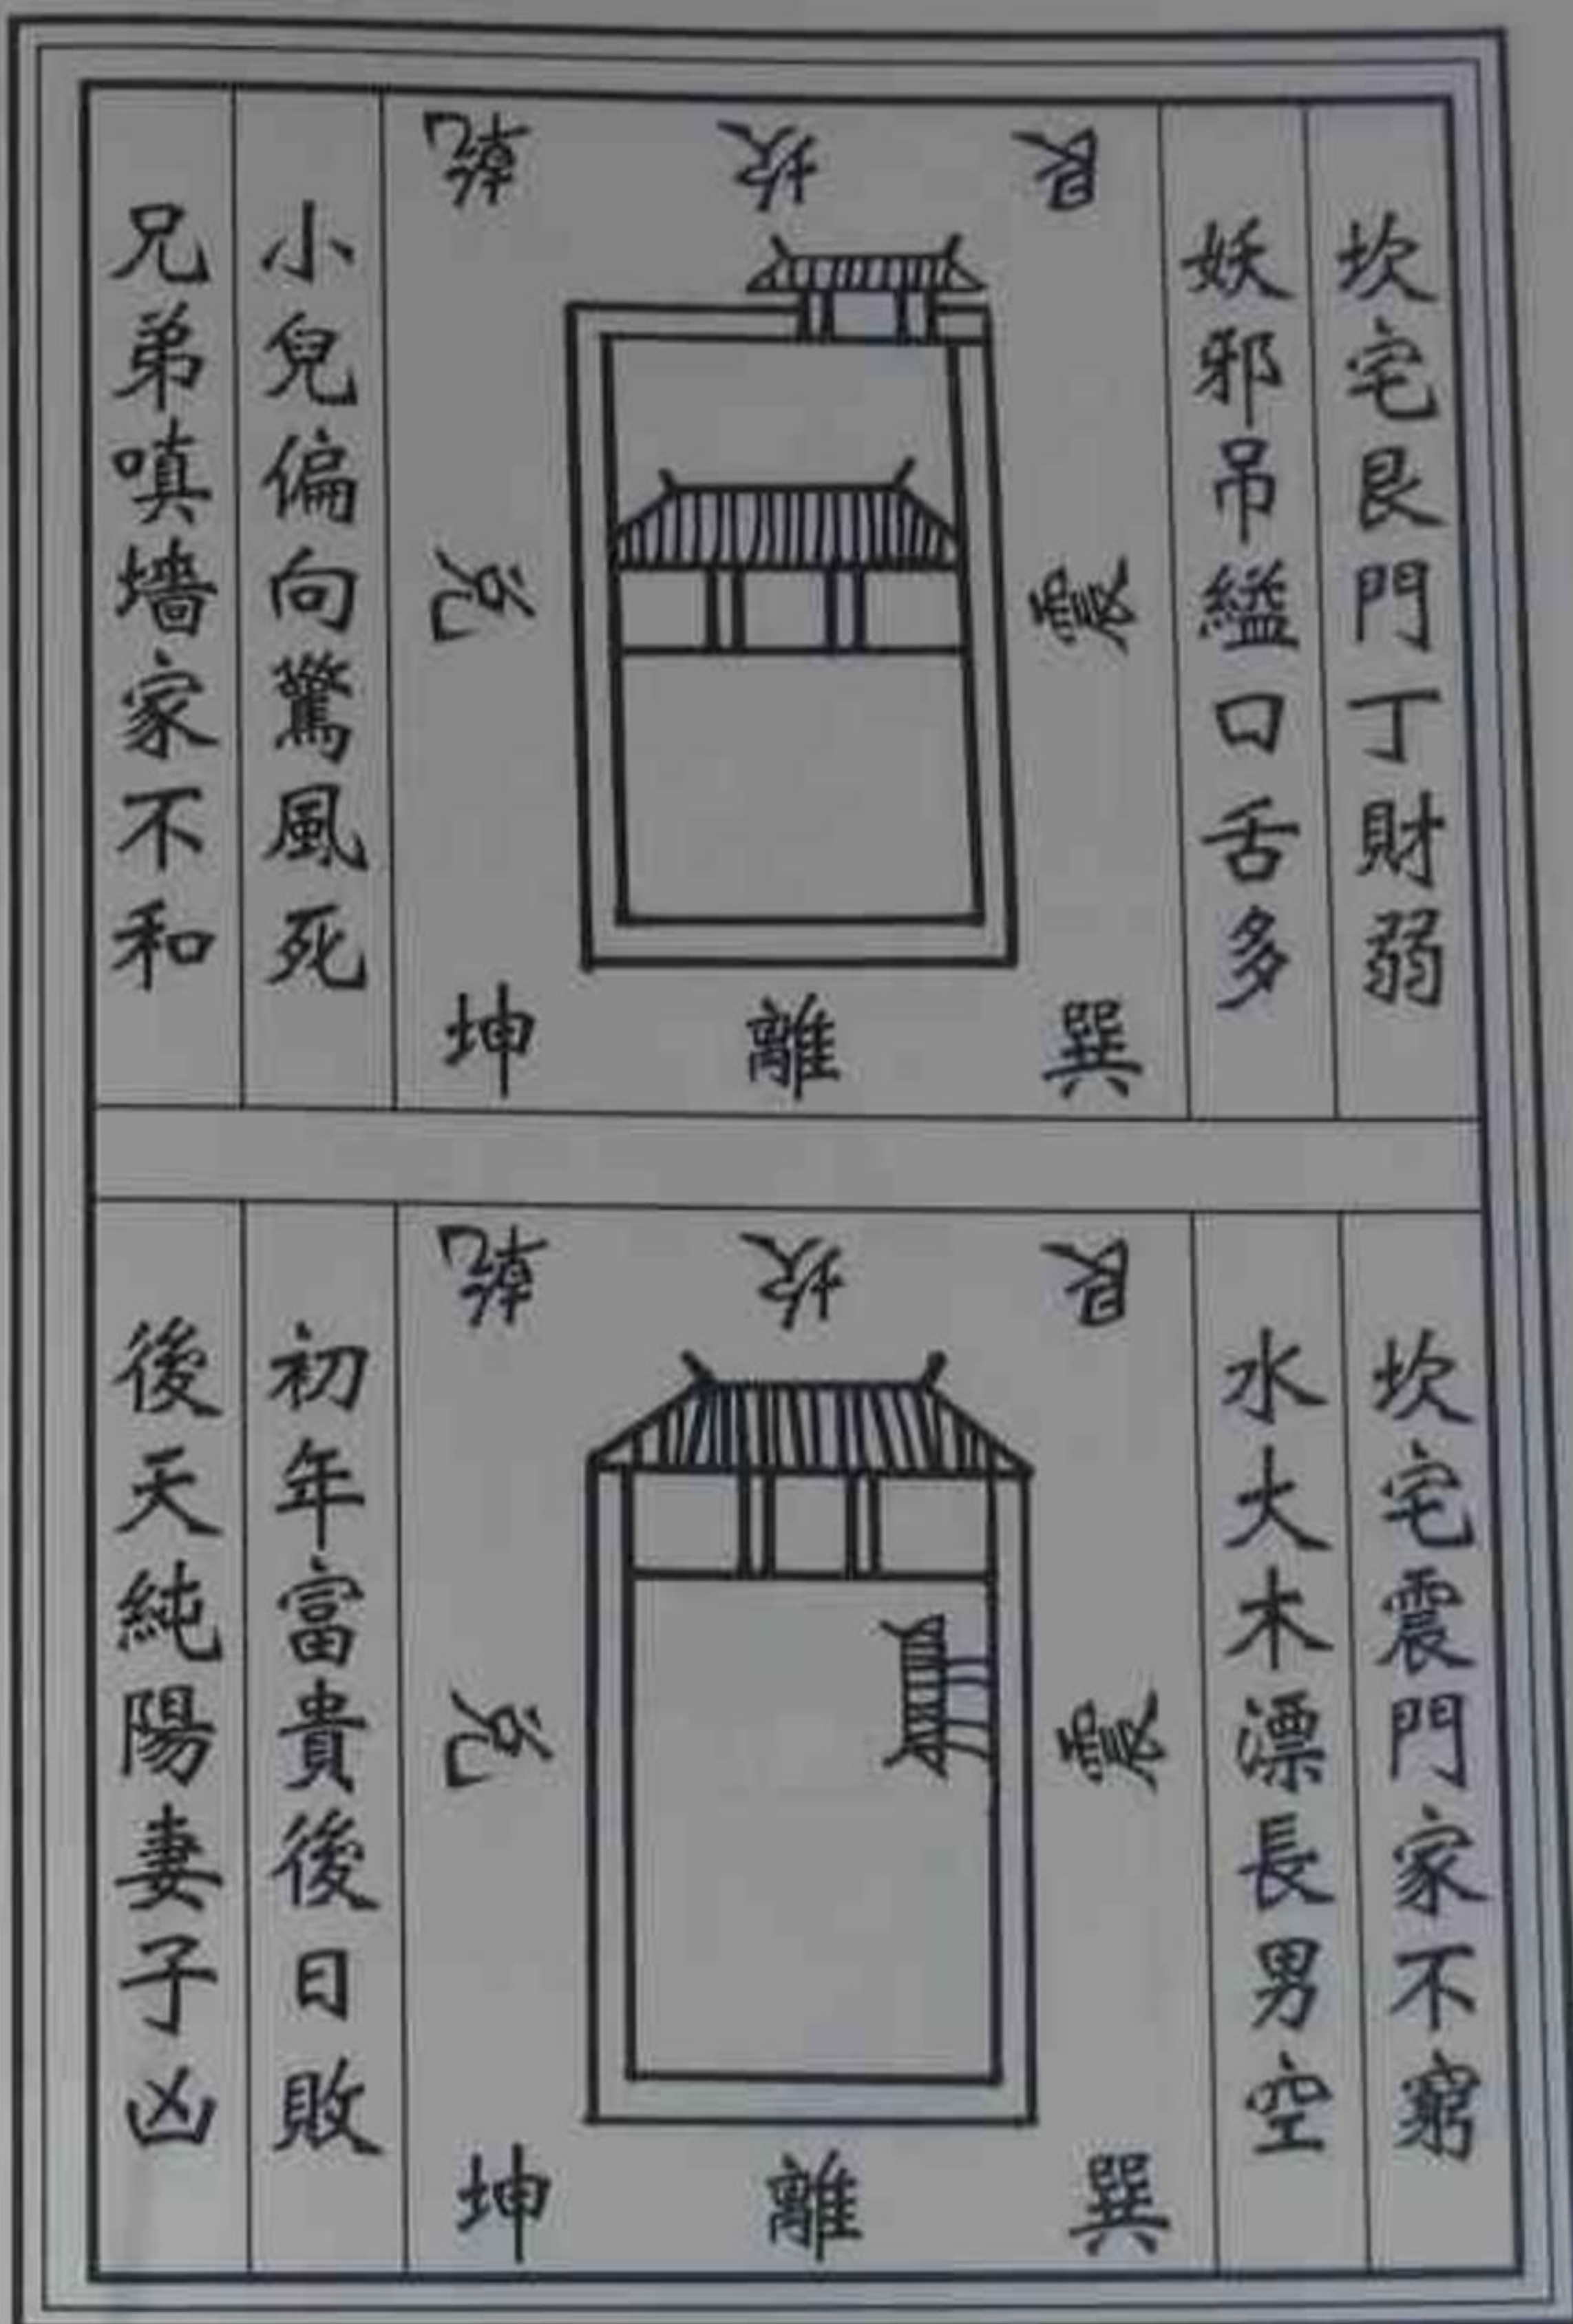 坎宅艮門丁財弱
妖邪吊縊口舌多
艮 坎 乾
震 兌
巽 離 坤
小兒偏向驚風死
兄弟嗔墻家不和
坎宅震門家不窮
水大木漂長男空
艮 坎 乾
震 兌
巽 離 坤
初年富貴後日敗
後天純陽妻子凶